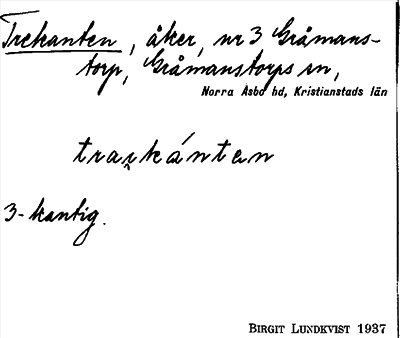 Trekanten, åker, nr 3 Gråmans-
torp, Gråmanstorps sn,
Norra Åsbo hd, Kristianstads län
trækánten
3-kantig.
BIRGIT LUNDKVIST 1937